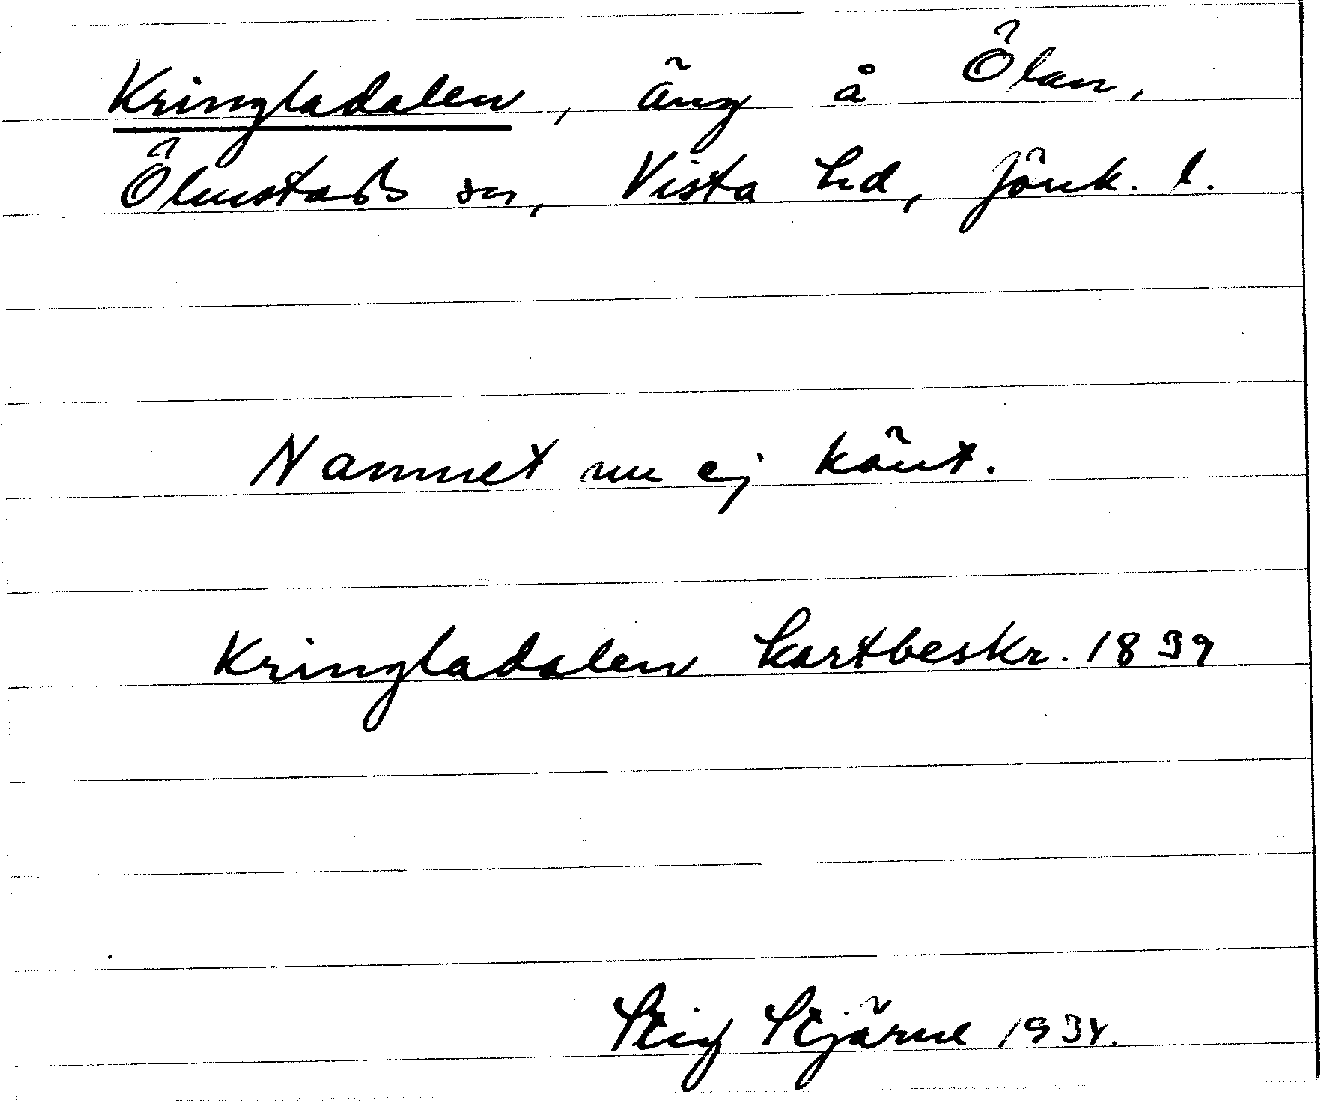 Kringladalen, äng å Ölan,
Ölmstads sn, Vista hd, Jönk. l.
Namnet nu ej känt.
Kringladalen kartbeskr. 1839
Stig Stjärne 1934.